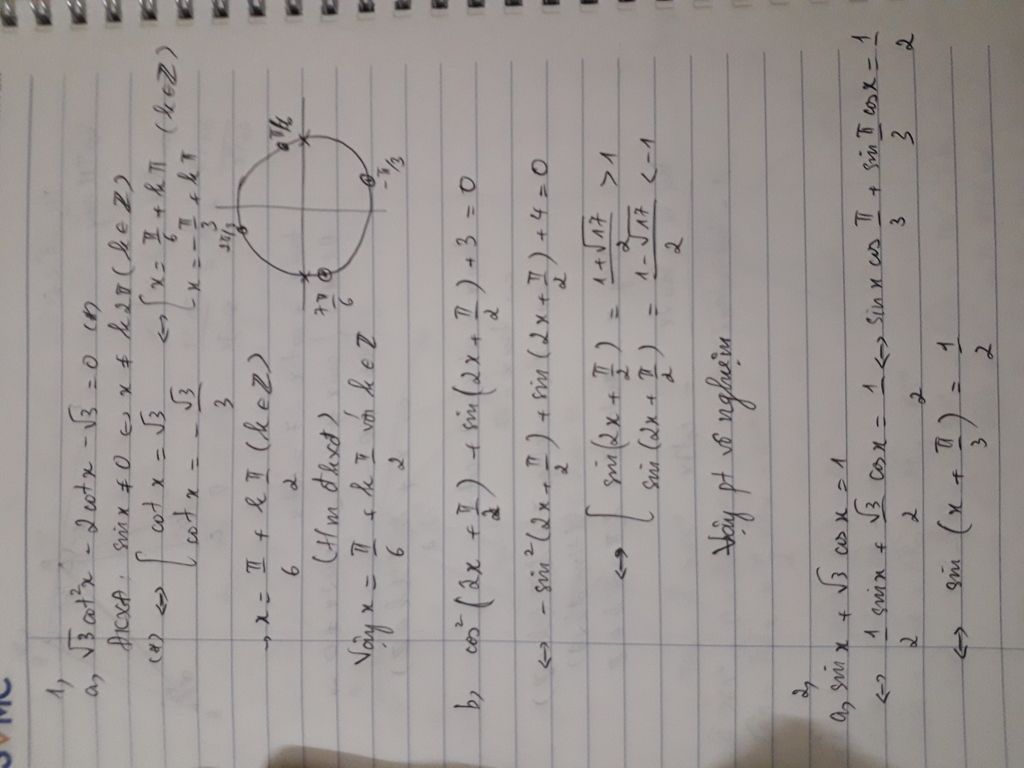 VMC
1,
a, √3 cot²x - 2cotx - √3 = 0 (*)
ĐKXĐ: sinx ≠ 0 ⇔ x ≠ k2π (k ∈ Z)
(*) ⇔ [ cot x = √3 ⇔ [ x = π/6 + kπ (k ∈ Z)
cot x = -√3/3 x = -π/3 + kπ
2π/3
π/6
7π/6
-π/3
→ x = π/6 + k π/2 (k ∈ Z)
(t/m đkxđ)
Vậy x = π/6 + k π/2 với k ∈ Z
b, cos²(2x + π/2) + sin(2x + π/2) + 3 = 0
⇔ - sin²(2x + π/2) + sin(2x + π/2) + 4 = 0
⇔ [ sin(2x + π/2) = (1+√17)/2 > 1
sin(2x + π/2) = (1-√17)/2 < -1
Vậy pt vô nghiệm
2,
a, sinx + √3 cosx = 1
⇔ 1/2 sinx + √3/2 cosx = 1/2 ⇔ sinx cos π/3 + sin π/3 cosx = 1/2
⇔ sin (x + π/3) = 1/2